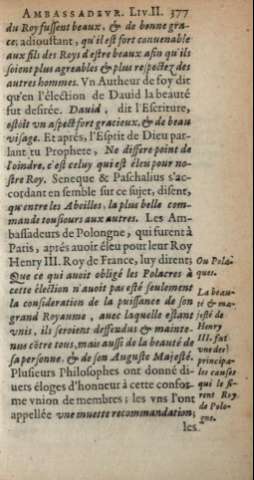 AMBASSADEVR. LIV. II. 377
du Roy fussent beaux, & de bonne gra-
ce, adioustant, qu'il est fort conuenable
aux fils des Roys d'estre beaux afin qu'ils
soient plus agreables & plus respectez des
autres hommes. Vn Autheur de foy dit
qu'en l'élection de Dauid la beauté
fut desirée. Dauid, dit l'Escriture,
estoit vn aspect fort gracieux, & de beau
visage. Et aprés, l'Esprit de Dieu par-
lant tu Prophete, Ne differe point de
l'oindre, c'est celuy qui est éleu pour no-
stre Roy. Seneque & Paschalius s'ac-
cordant en semble sur ce sujet, disent,
qu'entre les Abeilles, la plus belle com-
mande tousiours aux autres. Les Am-
bassadeurs de Polongne, qui furent à
Paris, aprés auoir éleu pour leur Roy
Henry III. Roy de France, luy dirent;
Que ce qui auoit obligé les Polacres à
cette élection n'auoit pas esté seulement
la consideration de la puissance de son
grand Royaume, auec laquelle estant
vnis, ils seroient deffendus & mainte-
nus côtre tous, mais aussi de la beauté de
sa personne, & de son Auguste Majesté.
Plusieurs Philosophes ont donné di-
uers éloges d'honneur à cette confor-
me vnion de membres; les vns l'ont
appellée vne muette recommandation;
les
Ou Pola-
ques.
La beau-
té & ma-
jesté de
Henry
III. fut
vne des
principa-
les causes
qui le fi-
rent Roy
de Polo-
gne.